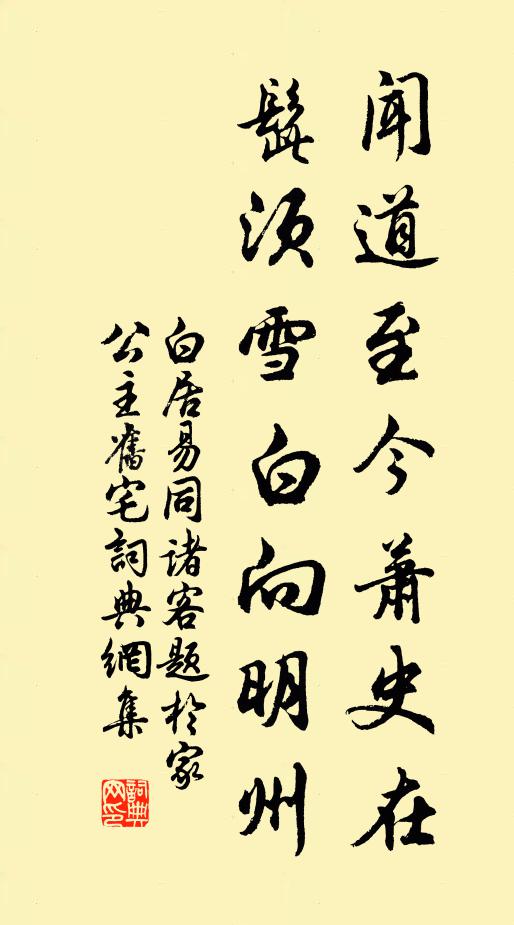 闻道至今萧史在
髭须雪白向明州
白居易同诸客题於家
公主旧宅词典網集
詞典网印